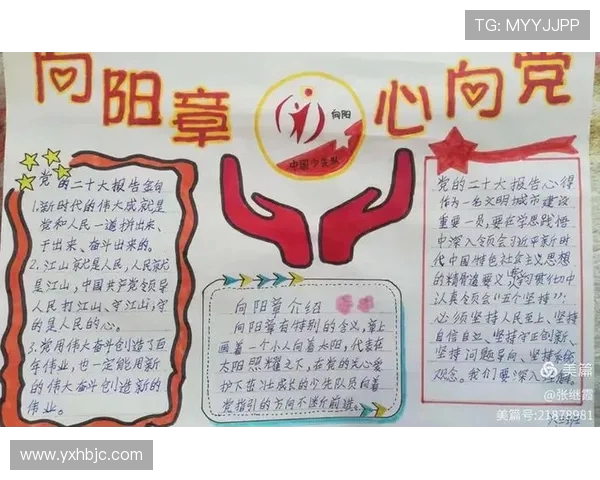 TG: MYYJJPP
向阳章 心向党
向阳
中国少先队
党的二十大报告金句
1.新时代的伟大成就是
党和人民一道拼出来、
干出来、奋斗出来的。
2.江山就是人民,人民就
是江山,中国共产党领导
人民打江山、守江山,守
的是人民的心。
3.党用伟大奋斗创造了百
年伟业,也一定能用新
的伟大奋斗创造新的
伟业。
向阳章介绍
向阳章有特别的含义,章上
画着一个小人向着太阳,代表在
太阳照耀之下,在党的关心爱
护下茁壮成长的少先队员向着
党指引的方向不断前进。
党的二十大报告心得
作为一名文明城市建设
重要一员,要在学思践悟
中深入领会习近平新时
代中国特色社会主义思想
的精髓道要义,学习贯彻中
认真领会“六个坚持”,
必须坚持人民至上、坚持
自信自立、坚持守正创新、
坚持问题导向、坚持系统
观念。我们要深入
美篇
@张继霞
美篇号:21878981
www.yxhbjc.com